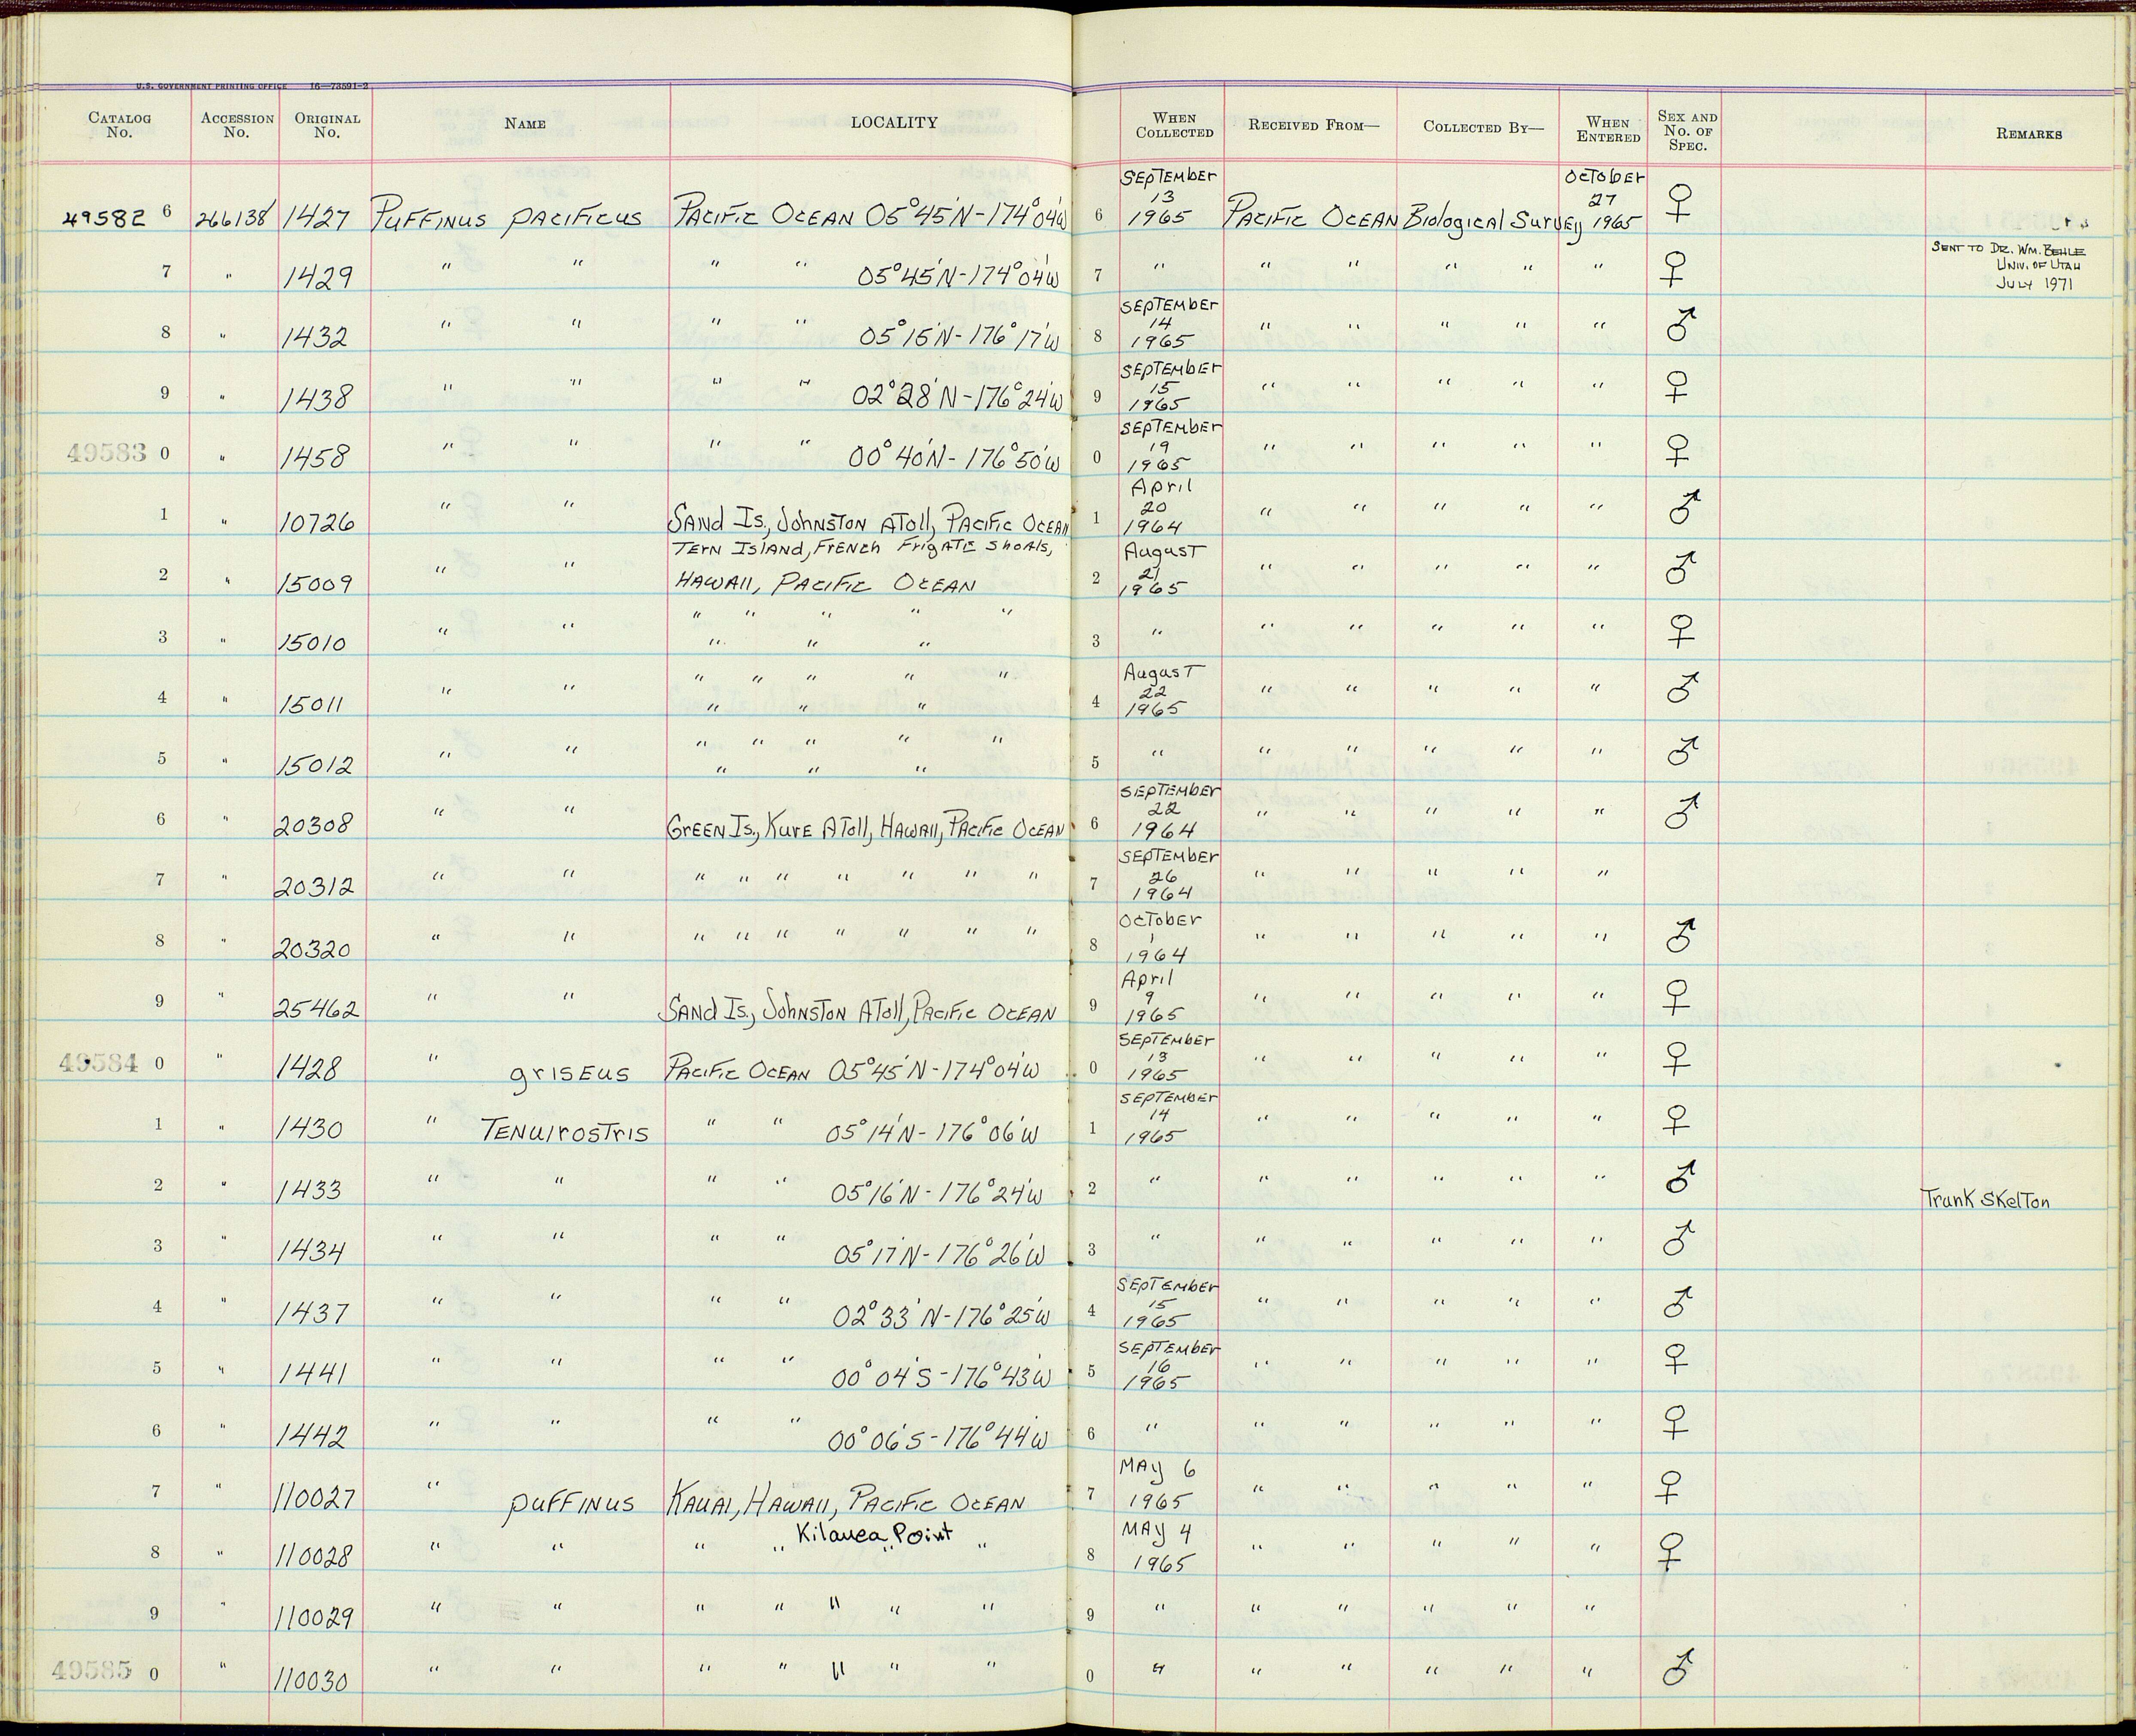 U.S. GOVERNMENT PRINTING OFFICE 16—73591-2
CATALOG No. ACCESSION No. ORIGINAL No. NAME LOCALITY WHEN COLLECTED RECEIVED FROM— COLLECTED BY— WHEN ENTERED SEX AND No. OF SPEC. REMARKS
49582 6 266138 1427 Puffinus pacificus Pacific Ocean 05°45'N-174°04'W 6 September 13 1965 Pacific Ocean Biological Survey October 27 1965 ♀
7 " 1429 " " " " 05°45'N-174°04'W 7 " " " " " " ♀ Sent to Dr. Wm. Behle Univ. of Utah July 1971
8 " 1432 " " " " 05°15'N-176°17'W 8 September 14 1965 " " " " " ♂
9 " 1438 " " " " 02°28'N-176°24'W 9 September 15 1965 " " " " " ♀
49583 0 " 1458 " " " " 00°40'N-176°50'W 0 September 19 1965 " " " " " ♀
1 " 10726 " " Sand Is., Johnston Atoll, Pacific Ocean 1 April 20 1964 " " " " " ♂
2 " 15009 " " Tern Island, French Frigate Shoals, Hawaii, Pacific Ocean 2 August 21 1965 " " " " " ♂
3 " 15010 " " " " " " " " " " 3 " " " " " " ♀
4 " 15011 " " " " " " " " " " 4 August 22 1965 " " " " " ♂
5 " 15012 " " " " " " " " " " 5 " " " " " " ♂
6 " 20308 " " Green Is., Kure Atoll, Hawaii, Pacific Ocean 6 September 22 1964 " " " " " ♂
7 " 20312 " " " " " " " " " 7 September 26 1964 " " " " "
8 " 20320 " " " " " " " " " 8 October 1 1964 " " " " " ♂
9 " 25462 " " Sand Is., Johnston Atoll, Pacific Ocean 9 April 9 1965 " " " " " ♀
49584 0 " 1428 " griseus Pacific Ocean 05°45'N-174°04'W 0 September 13 1965 " " " " " ♀
1 " 1430 " Tenuirostris " " 05°14'N-176°06'W 1 September 14 1965 " " " " " ♀
2 " 1433 " " " " 05°16'N-176°24'W 2 " " " " " " ♂ Trunk Skelton
3 " 1434 " " " " 05°17'N-176°26'W 3 " " " " " " ♂
4 " 1437 " " " " 02°33'N-176°25'W 4 September 15 1965 " " " " " ♂
5 " 1441 " " " " 00°04'S-176°43'W 5 September 16 1965 " " " " " ♀
6 " 1442 " " " " 00°06'S-176°44'W 6 " " " " " " ♀
7 " 110027 " puffinus Kauai, Hawaii, Pacific Ocean 7 May 6 1965 " " " " " ♀
8 " 110028 " " " " Kilauea Point " " 8 May 4 1965 " " " " " ♀
9 " 110029 " " " " " " " 9 " " " " " "
49585 0 " 110030 " " " " " " " 0 " " " " " " ♂